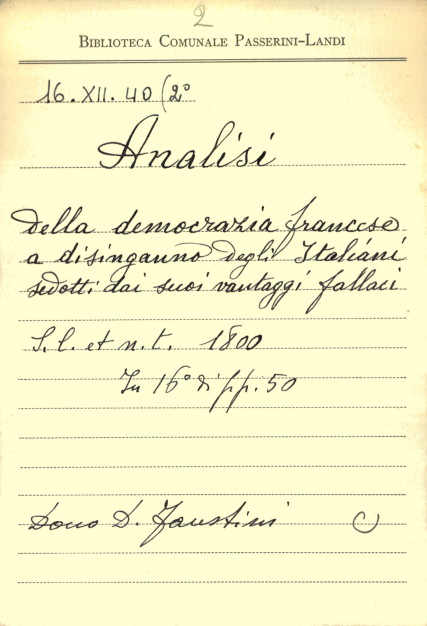 2
BIBLIOTECA COMUNALE PASSERINI-LANDI
16.XII.40(2°
Analisi
della democrazia francese
a disinganno degli Italiani
sedotti dai suoi vantaggi fallaci
S. l. et n. t. 1800
In 16° di pp. 50
Dono D. Faustini C